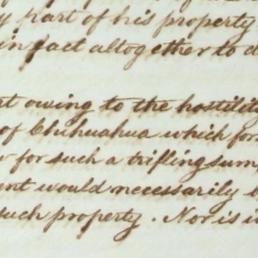 part of his property
in fact altogether to d
owing to the hostility
of Chihuahua which for
for such a trifling sum,
would necessarily b
such property. Nor is i